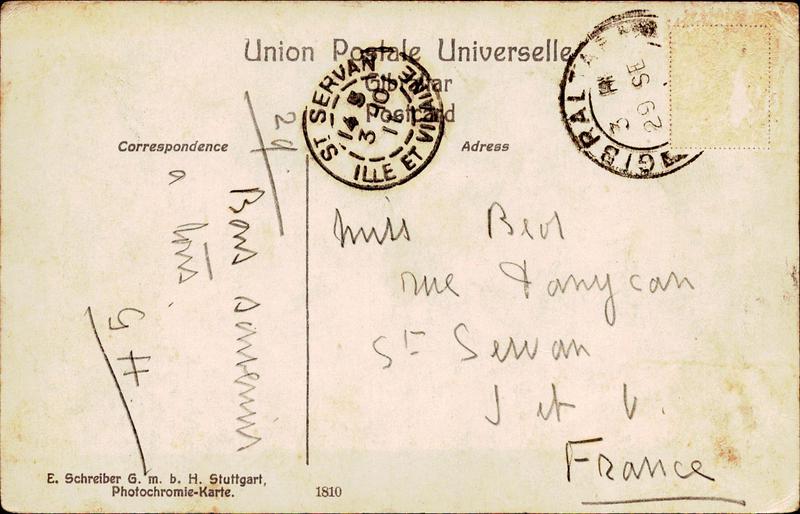 Union Postale Universelle
Gibraltar
Postcard
Correspondence
Adress
ST SERVAN
ILLE ET VILAINE
14 5
3 10
GIBRALTAR
3 PM
29 SE
29
Bons souvenirs
a tous
G H
Miss
rue Danycan
St Servan
I et V.
France
E. Schreiber G. m. b. H. Stuttgart,
Photochromie-Karte.
1810